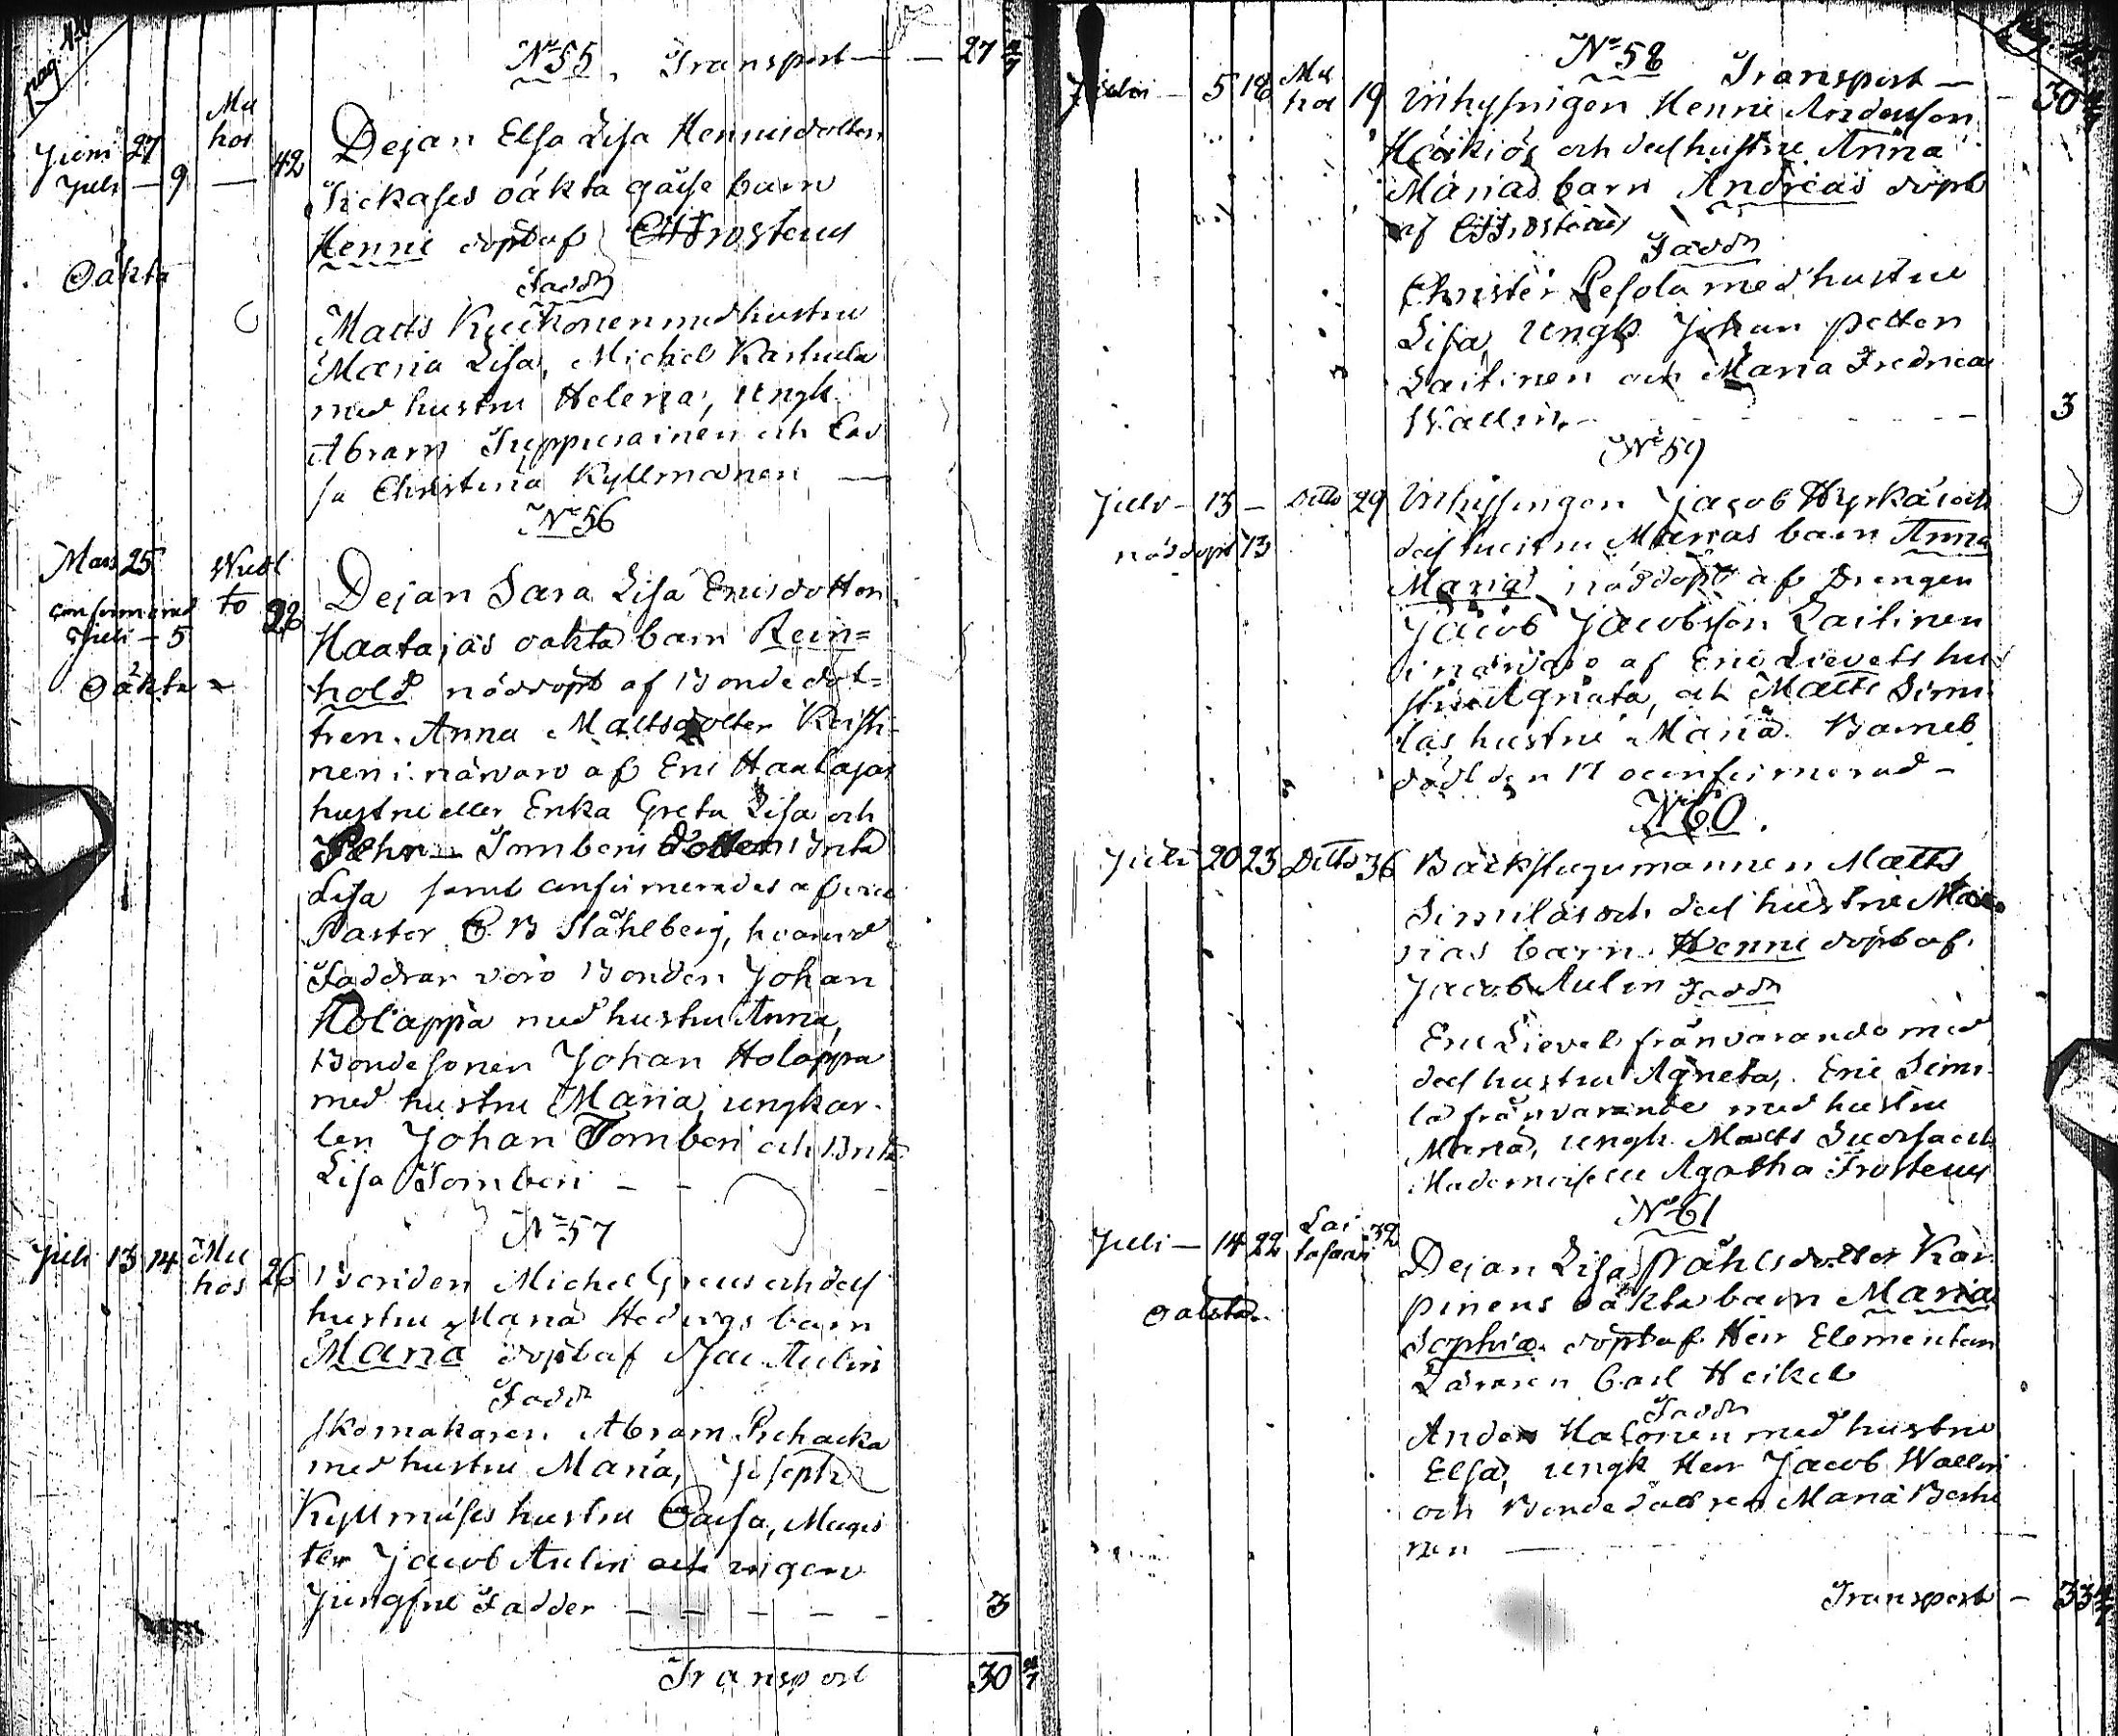 pag.
N:o 55. Transport — 27
Mu
hos
Juni 27
Juli — 9 — 42
Oäkta
Dejan Elsa Lisa Henricsdotter
oäkta gåsse barn
Henric döpt af Frosteus
Fadd:r
Matts Kukkonen med hustru
Maria Lisa, Michel Karhula
med hustru Helena, Ungk.
Abram Tuppurainen och Cai
sa Christina Kyllmänen —
N:o 56
Mars 25
confirmerad
Juli — 5
Oäkta
to 28
Dejan Sara Lisa Ericsdotter
Haatajas oäkta barn Rein=
hold nöddöpt af Bondedot=
tren Anna Mattsdotter
nen i närvaro af Eric Haatajas
hustru eller Enka Greta Lisa och
Pehr Tomberis dotter Brita
Lisa samt confirmerades af vice
Pastor C. B Ståhlberg, hvarvid
Faddrar voro Bonden Johan
Holappa med hustru Anna,
Bondesonen Johan Holappa
med hustru Maria, ungkar-
len Johan Tomberi och Brita
Lisa Tomberi — — —
N:o 57
Juli 13 14 Mu
hos 26
Bonden Michel Greus och dess
hustru Maria Hedvigs barn
Maria döpt af Jac Aulin
Fadd:r
Skomakaren Abram
med hustru Maria, Joseph
hustru Caisa, Magis
ter Jacob Aulin och
Jungfru Fadder — — — — — 3
Transport 30
N:o 58 Transport — 30
5 18 Mu
hos 19
Inhysingen Henric Andersson
Härkiös och dess hustru Anna
Marias barn Andreas döpt
af Frosteus
Fadd:r
Christer Lesola med hustru
Lisa, Ungk. Johan Petter
Laitinen och Maria Fredrica
Wallin. — 3
N:o 59
Juli — 13 — Ditto 29
nöddöpt 13
Inhysingen Jacob och
dess hustru Marias barn Anna
Maria nöddöpt af Drengen
Jacob Jacobsson Laitinen
i närvaro af Eric Lievets hu
stru Agneta, och Matts Simi
läs hustru Maria. Barnet
död den 17 oconfirmerad —
N:o 60.
Juli 20 23 Ditto 36
Backstugumannen Matts
Similäs och dess hustru Ma
rias barn Henric döpt af
Jacob Aulin Fadd:r
Eric Lievet frånvarande med
dess hustru Agneta, Eric Simi
lä frånvarande med hustru
Maria, ungk. Matts och
Mademoiselle Agatha Frosteus
N:o 61
Juli — 14 22 Lai
tasaari 32
oäkta
Dejan Lisa Påhlsdotter Kar
pinens oäkta barn Maria
Sophia döpt af Herr Elementar
Läraren Carl Heikel
Fadd:r
Anders Halonen med hustru
Elsa, ungk Herr Jacob Wallin
och Bondedottren Maria
nen —
Transport — 33